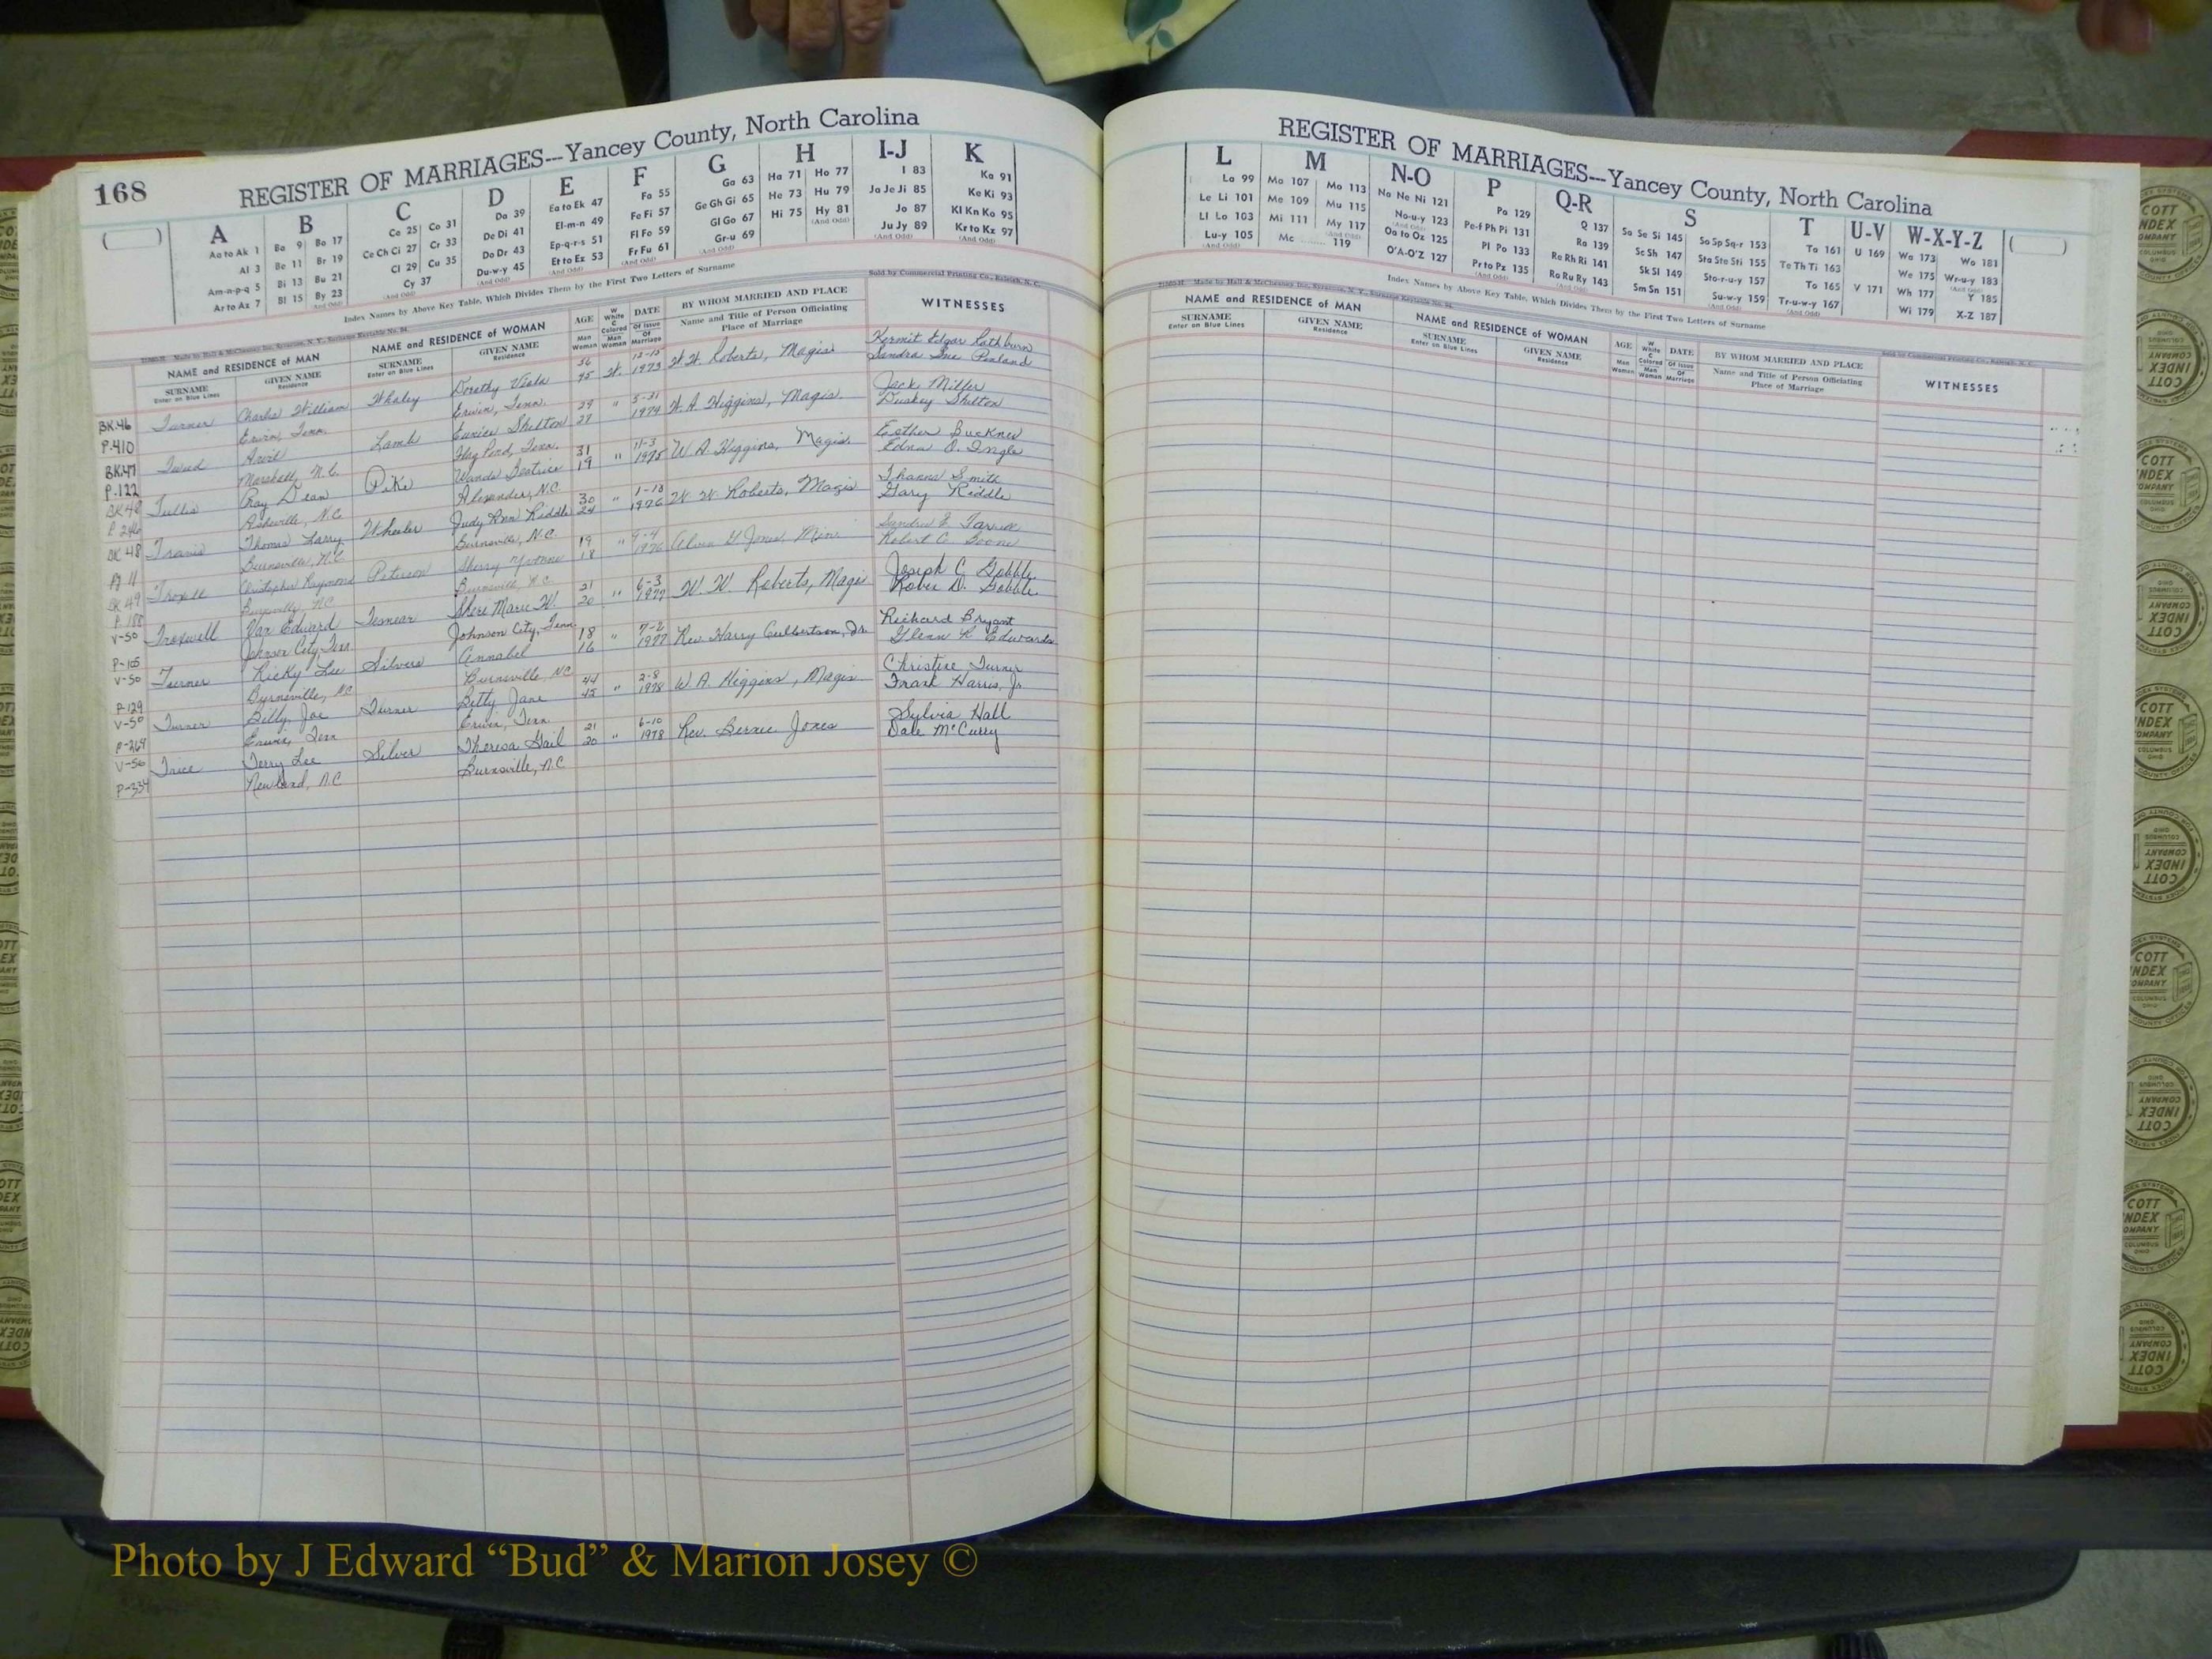 168
REGISTER OF MARRIAGES---Yancey County, North Carolina
A B C D E F G H I-J K
Aa to Ak 1
Al 3
Am-n-p-q 5
Ar to Az 7
Ba 9 Bo 17
Be 11 Br 19
Bi 13 Bu 21
Bl 15 By 23
(And Odd)
Ca 25 Co 31
Ce Ch Ci 27 Cr 33
Cl 29 Cu 35
(And Odd) Cy 37
Da 39
De Di 41
Do Dr 43
Du-w-y 45
(And Odd)
Ea to Ek 47
El-m-n 49
Ep-q-r-s 51
Et to Ez 53
(And Odd)
Fa 55
Fe Fi 57
Fl Fo 59
Fr Fu 61
(And Odd)
Ga 63
Ge Gh Gi 65
Gl Go 67
Gr-u 69
(And Odd)
Ha 71 Ho 77
He 73 Hu 79
Hi 75 Hy 81
(And Odd)
I 83
Ja Je Ji 85
Jo 87
Ju Jy 89
(And Odd)
Ka 91
Ke Ki 93
Kl Kn Ko 95
Kr to Kz 97
(And Odd)
Index Names by Above Key Table, Which Divides Them by the First Two Letters of Surname
Sold by Commercial Printing Co., Raleigh, N. C.
NAME and RESIDENCE of MAN
SURNAME
Enter on Blue Lines
GIVEN NAME
Residence
NAME and RESIDENCE of WOMAN
SURNAME
Enter on Blue Lines
GIVEN NAME
Residence
AGE
Man
Woman
W White
C Colored
Man
Woman
DATE
Of Issue
Of Marriage
BY WHOM MARRIED AND PLACE
Name and Title of Person Officiating
Place of Marriage
WITNESSES
BK.46 Turner Charles William Whaley Dorothy Viola 56 W. 12-15 W. W. Roberts, Magis Kermit Edgar Rathburn
P-410 Erwin, Tenn. Erwin, Tenn. 45 1973 Sandra Sue Penland
BK47 Tweed Arvil Lamb Eunice Shelton 29 " 5-31 W. A. Higgins, Magis. Jack Miller
P.122 Marshall, N.C. Flag Pond, Tenn. 27 1974 Duskey Shelton
BK48 Tullis Ray Dean Pike Wanda Beatrice 31 " 11-3 W. A. Higgins, Magis Esther Buckner
P. 246 Asheville, N.C. Alexander, N.C. 19 1975 Edna O. Ingle
BK 48 Thomas Larry Wheeler Judy Ann Riddle 30 " 1-18 W. W. Roberts, Magis Smith
Burnsville, N.C. Burnsville, N.C. 24 1976 Gary Riddle
BK 49 Christopher Raymond Peterson Sherry Yvonne 19 " 9-4 Min.
P. 188 Burnsville, N.C. Burnsville, N.C. 18 1976 Robert C. Boone
V-50 Troxwell Var Edward Sheri Marie W. 21 " 6-3 W. W. Roberts, Magis Joseph C. Gobble
P-105 Johnson City, Tenn. Johnson City, Tenn. 20 1977 Robin D. Gobble
V-50 Turner Ricky Lee Silvers Annabel 18 " 7-2 Rev. Harry Culbertson, Jr. Richard Bryant
P-129 Burnsville, NC Burnsville, NC 16 1977 Glenn R. Edwards
V-50 Turner Billy Joe Turner Betty Jane 44 " 2-8 W. A. Higgins, Magis Christine Turner
P-264 Erwin, Tenn Erwin, Tenn 45 1978 Frank Harris, Jr
V-50 Trice Terry Lee Silver Theresa Gail 21 " 6-10 Rev. Bernie Jones Sylvia Hall
P-334 Newland, N.C Burnsville, N.C 20 1978 Dale McCurry
REGISTER OF MARRIAGES---Yancey County, North Carolina
L M N-O P Q-R S T U-V W-X-Y-Z
La 99
Le Li 101
Ll Lo 103
Lu-y 105
(And Odd)
Ma 107 Mo 113
Me 109 Mu 115
Mi 111 My 117
(And Odd)
Mc ........ 119
Na Ne Ni 121
No-u-y 123
(And Odd)
Oa to Oz 125
O'A-O'Z 127
Pa 129
Pe-f Ph Pi 131
Pl Po 133
Pr to Pz 135
(And Odd)
Q 137
Ra 139
Re Rh Ri 141
Ro Ru Ry 143
(And Odd)
Sa Se Si 145 So Sp Sq-r 153
Sc Sh 147 Sta Ste Sti 155
Sk Sl 149 Sto-r-u-y 157
Sm Sn 151 Su-w-y 159
(And Odd)
Ta 161
Te Th Ti 163
To 165
Tr-u-w-y 167
(And Odd)
U 169
V 171
Wa 173 Wo 181
We 175 Wr-u-y 183
(And Odd)
Wh 177 Y 185
Wi 179 X-Z 187
Index Names by Above Key Table, Which Divides Them by the First Two Letters of Surname
Sold by Commercial Printing Co., Raleigh, N. C.
NAME and RESIDENCE of MAN
SURNAME
Enter on Blue Lines
GIVEN NAME
Residence
NAME and RESIDENCE of WOMAN
SURNAME
Enter on Blue Lines
GIVEN NAME
Residence
AGE
Man
Woman
W White
C Colored
Man
Woman
DATE
Of Issue
Of Marriage
BY WHOM MARRIED AND PLACE
Name and Title of Person Officiating
Place of Marriage
WITNESSES
COTT
INDEX
COMPANY
COLUMBUS
OHIO
Photo by J Edward “Bud” & Marion Josey ©